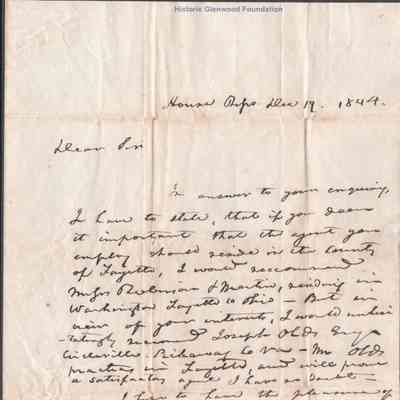 Historic Glenwood Foundation
House Reps Dec 19. 1844.
Dear Sir
In answer to your enquiry,
I have to state, that if you deem
it important that the agent you
employ should reside in the county
of Fayette, I would reccommend
Messrs & Martin, residing in
Washington Fayette Co Ohio – But in
view of your interests, I would unhesi
tatingly recommend Joseph Olds Esq
Circleville Pickaway Co – Mr Olds
practices in Fayette, and will prove
a satisfactory agent I have no doubt –
I hope to have the pleasure of